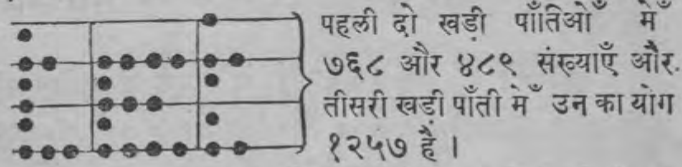 पहली दो खड़ी पाँतिओँ मेँ
७६८ और ४८९ संख्याएँ और.
तीसरी खड़ी पाँती मेँ उन का योग
१२५७ है ।